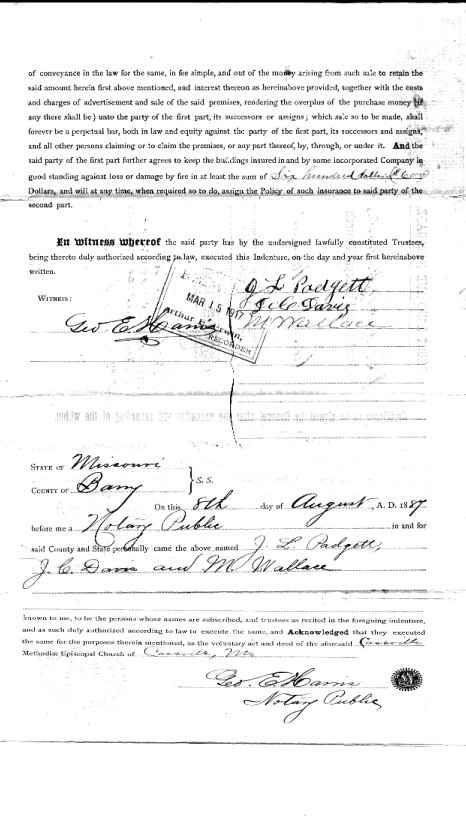 of conveyance in the law for the same, in fee simple, and out of the money arising from such sale to retain the
said amount herein first above mentioned, and interest thereon as hereinabove provided, together with the costs
and charges of advertisement and sale of the said premises, rendering the overplus of the purchase money (if
any there shall be) unto the party of the first part, its successors or assigns; which sale so to be made, shall
forever be a perpetual bar, both in law and equity against the party of the first part, its successors and assigns,
and all other persons claiming or to claim the premises, or any part thereof, by, through, or under it. And the
said party of the first part further agrees to keep the buildings insured in and by some incorporated Company in
good standing against loss or damage by fire in at least the sum of Six hundred dollars $600
Dollars, and will at any time, when required so to do, assign the Policy of such insurance to said party of the
second part.
In Witness Whereof the said party has by the undersigned lawfully constituted Trustees,
being thereto duly authorized according to law, executed this Indenture, on the day and year first hereinabove
written.
J L Padgett
WITNESS:
MAR 15 1917
J C Davis
Geo. E. Harris
M Wallace
Arthur
RECORDER
STATE OF Missouri
COUNTY OF Barry } S. S.
On this 8th day of August, A. D. 1887
before me a Notary Public in and for
said County and State personally came the above named J. L. Padgett,
J. C. Davis and M Wallace
known to me, to be the persons whose names are subscribed, and trustees as recited in the foregoing indenture,
and as such duly authorized according to law to execute the same, and Acknowledged that they executed
the same for the purposes therein mentioned, as the voluntary act and deed of the aforesaid Cassville
Methodist Episcopal Church of Cassville, Mo
Geo. E. Harris
Notary Public